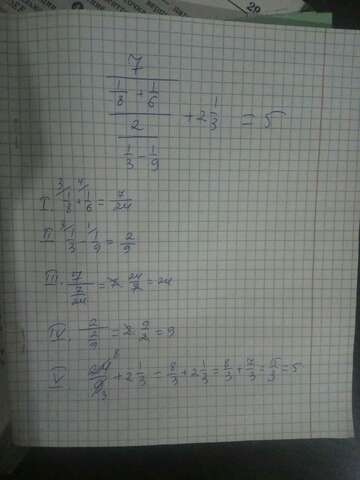 29
7 / (1/8 + 1/6) / 2 / (1/3 - 1/9) + 2 1/3 = 5
I. 1/8 + 1/6 = 7/24
II 1/3 - 1/9 = 2/9
III. 7 / 7/24 = 7 · 24/7 = 24
IV. 2 / 2/9 = 2 · 9/2 = 9
V. 24/9 + 2 1/3 = 8/3 + 2 1/3 = 8/3 + 7/3 = 15/3 = 5